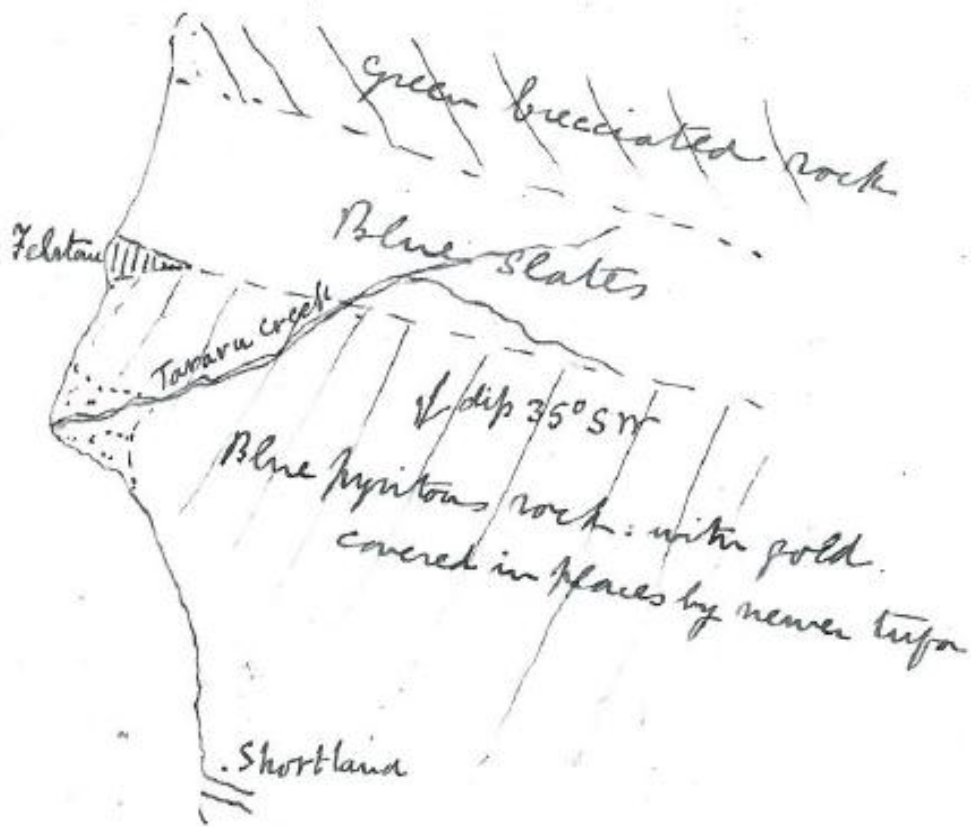 Green brecciated rock
Blue Slates
Felstone
Tararu Creek
dip 35° SW
Blue pyritous rock: with gold.
covered in places by newer tufa
. Shortland